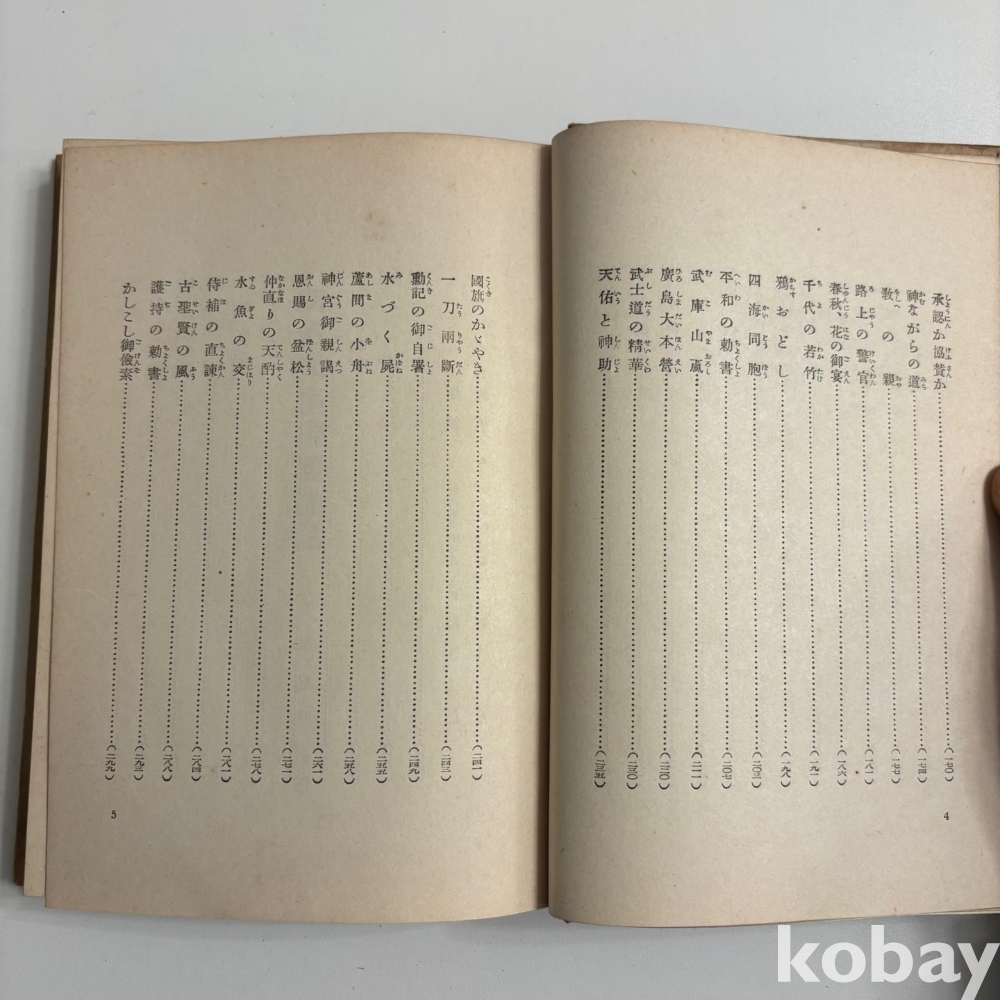 承認か協賛か……(一七〇)
神ながらの道……(一七四)
教の親……(一七七)
路上の警官……(一八一)
春秋、花の御宴……(一八六)
千代の若竹……(一九一)
鴉おどし……(一九八)
四海同胞……(二〇三)
平和の勅書……(二〇七)
武庫山颪……(二一一)
廣島大本營……(二二〇)
武士道の精華……(二三〇)
天佑と神助……(二三五)
4
國旗のかゞやき……(二四一)
一刀兩斷……(二四三)
勳記の御自署……(二四九)
水づく屍……(二五五)
蘆間の小舟……(二五八)
神宮御親謁……(二六一)
恩賜の盆松……(二七一)
仲直りの天酌……(二七八)
水魚の交……(二八一)
侍補の直諫……(二八四)
古聖賢の風……(二八八)
護持の勅書……(二九三)
かしこし御儉素……(二九九)
5
kobay